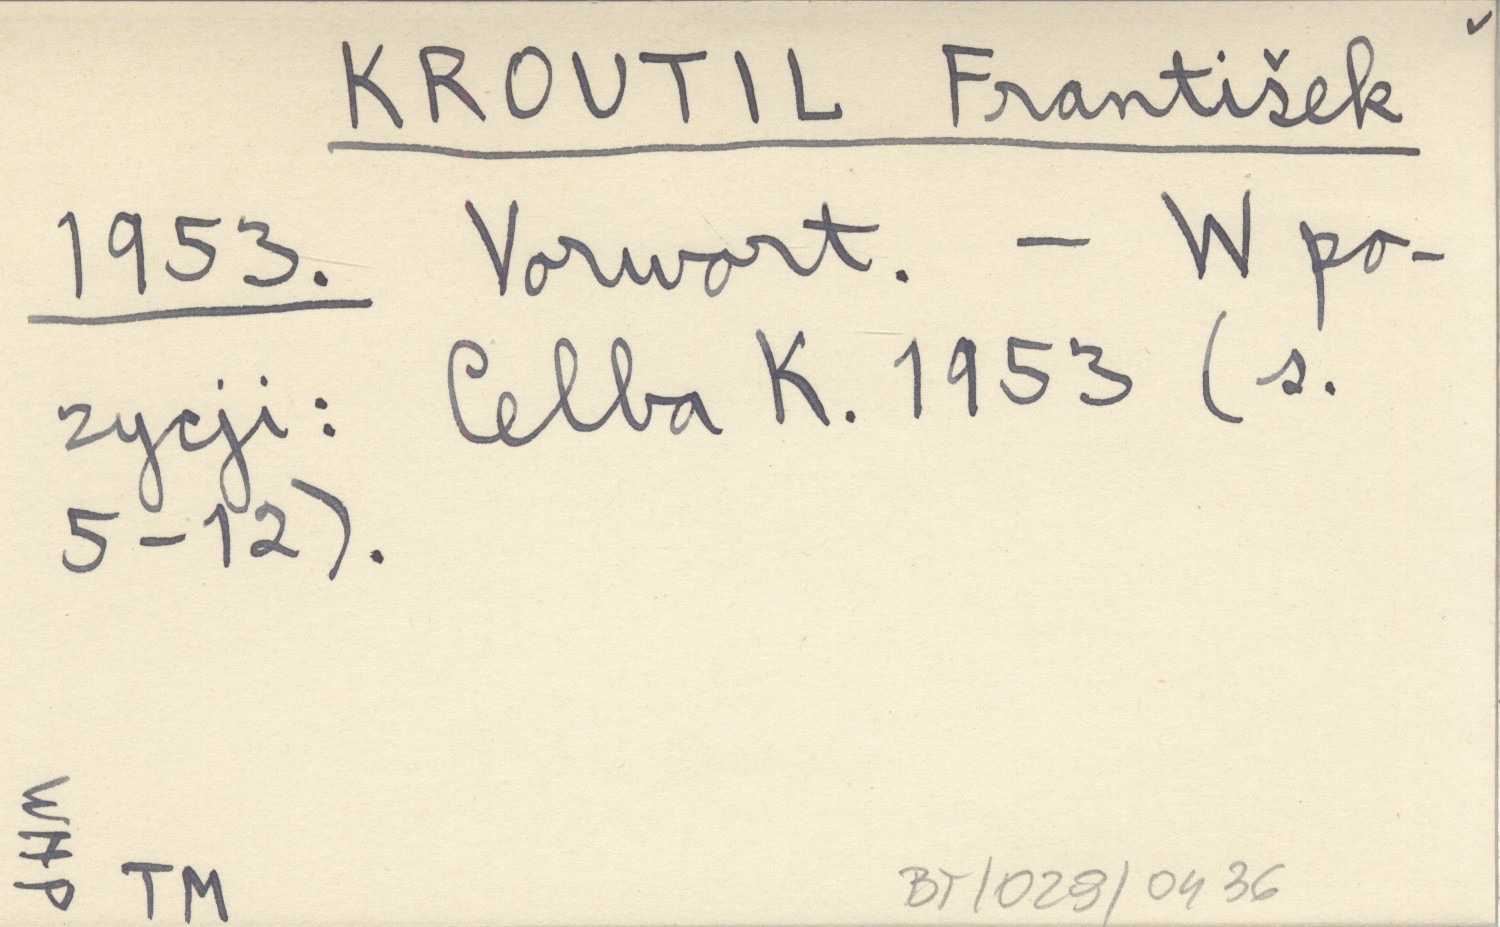 KROUTIL František
1953. Vorwort. – W po-
zycji: Celba K. 1953 (s.
5–12).
TM
BT/028/0436